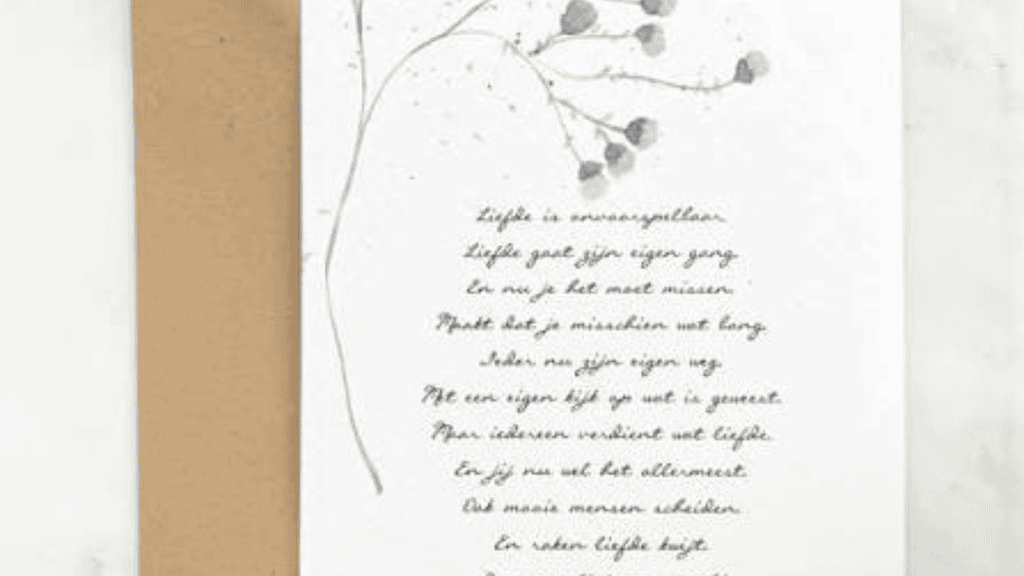 Liefde is onvoorspelbaar
Liefde gaat zijn eigen gang.
En nu je het moet missen.
Maakt dat je misschien wat bang.
Ieder nu zijn eigen weg.
Met een eigen kijk op wat is geweest.
Maar iedereen verdient wat liefde.
En jij nu wel het allermeest.
Ook mooie mensen scheiden.
En raken liefde kwijt.